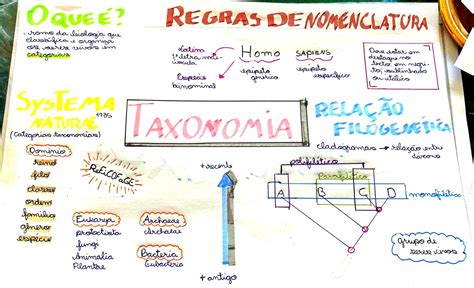 O QUE É?
→ ramo da biologia que
classifica e organiza
os seres vivos em
categorias
REGRAS DE NOMENCLATURA
Latim
1ª letra mai-
úscula
Espécies
binominal
HOMO SAPIENS
epípeto
genérico
epípeto
específico
Deve estar em
destaque no
texto: em negri-
to, sublinhado
ou itálico
SYSTEMA
NATURAE 1735
(Categorias taxonômicas)
Domínio
reino
filo
classe
ordem
família
gênero
espécie
ReFiCOFaGE
TAXONOMIA
RELAÇÃO
FILOGENÉTICA
cladogramas → relação entre
táxons
Eukarya
protoctista
fungi
Animalia
Plantae
Archaea
Archaea
Bacteria
Eubacteria
+ recente
+ antigo
polifilítico
Parafilítico
A B C D
monofilético
grupo de
seres vivos